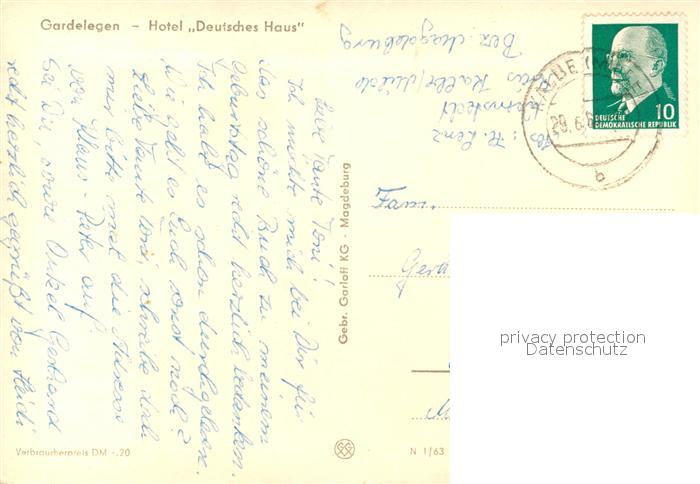 Gardelegen – Hotel „Deutsches Haus"
Liebe Tante Toni!
Ich möchte mich bei Dir für
das schöne Buch zu meinem
Geburtstag recht herzlich bedanken.
Ich habe es schon durchgelesen.
Wie geht es Euch sonst noch?
Liebe Tante Toni, schreibe doch
mir bitte mal die Adresse
von Klaus-Peter auf.
Sei Du, sowie Onkel Gerhard
recht herzlich gegrüßt von Heidi
Abs: H. Lenz
Kalbe/Milde
Bez. Magdeburg
Gebr. Garloff KG · Magdeburg
DEUTSCHE
DEMOKRATISCHE REPUBLIK
10
Fam.
privacy protection
Datenschutz
Verbraucherpreis DM -.20
N 1/63